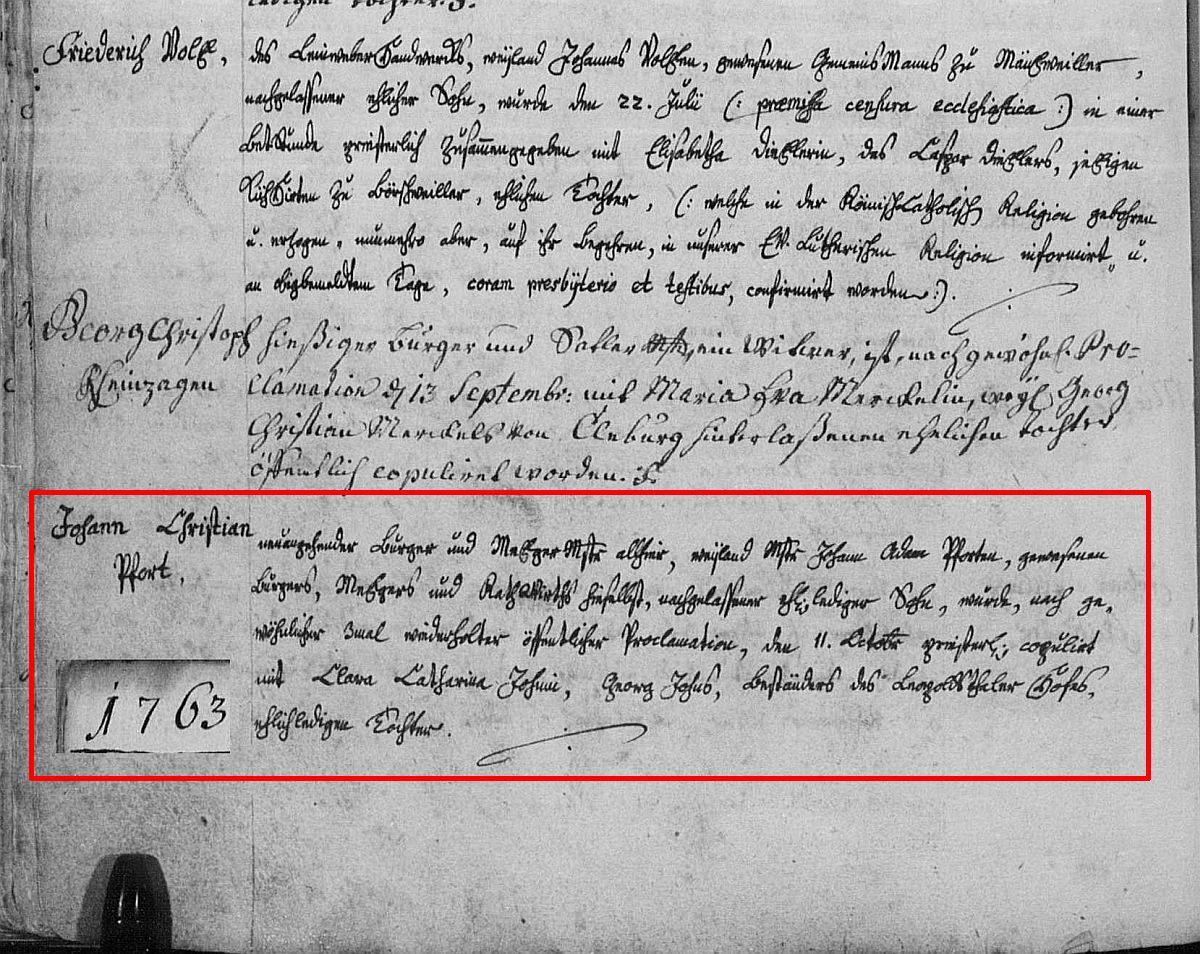 ledigen Tochter.
Friederich Voltz, des Leinweber Handwercks, weyland Johannes Voltzen, gewesenen Gemeins Manns zu
nachgelassener ehlicher Sohn, wurde den 22. Julii (: præmissa censura ecclesiastica :) in einer
Betstunde priesterlich zusammengegeben mit Elisabetha Dietzlerin, des Caspar Dietzlers, jetzigen
Kühhirten zu Börschweiller, ehlichen Tochter, (: welche in der Römisch Catholisch Religion gebohren
u. erzogen, nunmehro aber, auf ihr Begehren, in unserer Ev. Lutherischen Religion informirt, u.
an obigbemeldtem Tage, coram presbÿterio et testibus, confirmirt worden :).
Georg Christoph hießiger Burger und Satler Mstr, ein Witwer, ist, nach gewöhnl. Pro-
Rheinzagen clamation d. 13 Septembr: mit Maria Eva Merckelin, weyl. Georg
Christian Merckels von Cleburg hinterlaßenen ehelichen tochter
öffentlich copuliret worden.
Johann Christian neuangehender Burger und Metzger Mstr allhier, weyland Mstr Johann Adam Pforten, gewesenen
Pfort, Burgers, Metzgers und hieselbst, nachgelassener ehl. lediger Sohn, wurde, nach ge-
wöhnlicher 3mal wiederholter öffentlicher Proclamation, den 11. Octobr priesterl. copulirt
mit Clara Catharina Johni, Georg Johns, Beständers des Leopoldsthaler Hofes,
1763 ehlich ledigen Tochter.